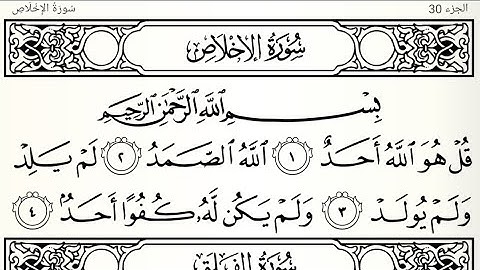 الجزء 30 سُورَةُ الإِخْلَاصِ
سُورَةُ ٱلإِخْلَاصِ
بِسْمِ ٱللَّهِ ٱلرَّحْمَٰنِ ٱلرَّحِيمِ
قُلْ هُوَ ٱللَّهُ أَحَدٌ ١ ٱللَّهُ ٱلصَّمَدُ ٢ لَمْ يَلِدْ
وَلَمْ يُولَدْ ٣ وَلَمْ يَكُن لَّهُۥ كُفُوًا أَحَدٌۢ ٤
سُورَةُ ٱلْفَلَقِ